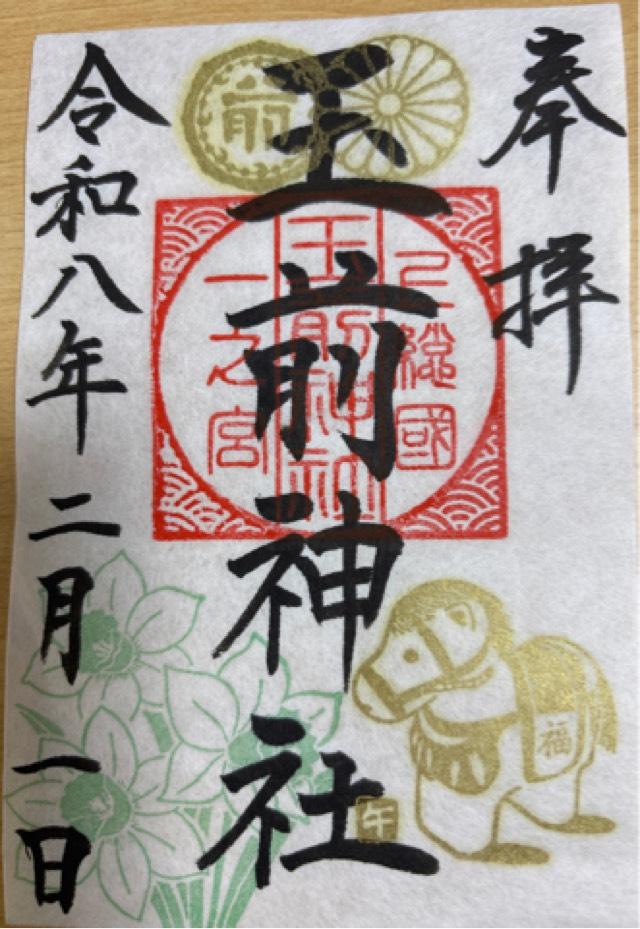 奉拝
玉前神社
令和八年二月一日
上總國
玉前神社
一之宮
前
福
午